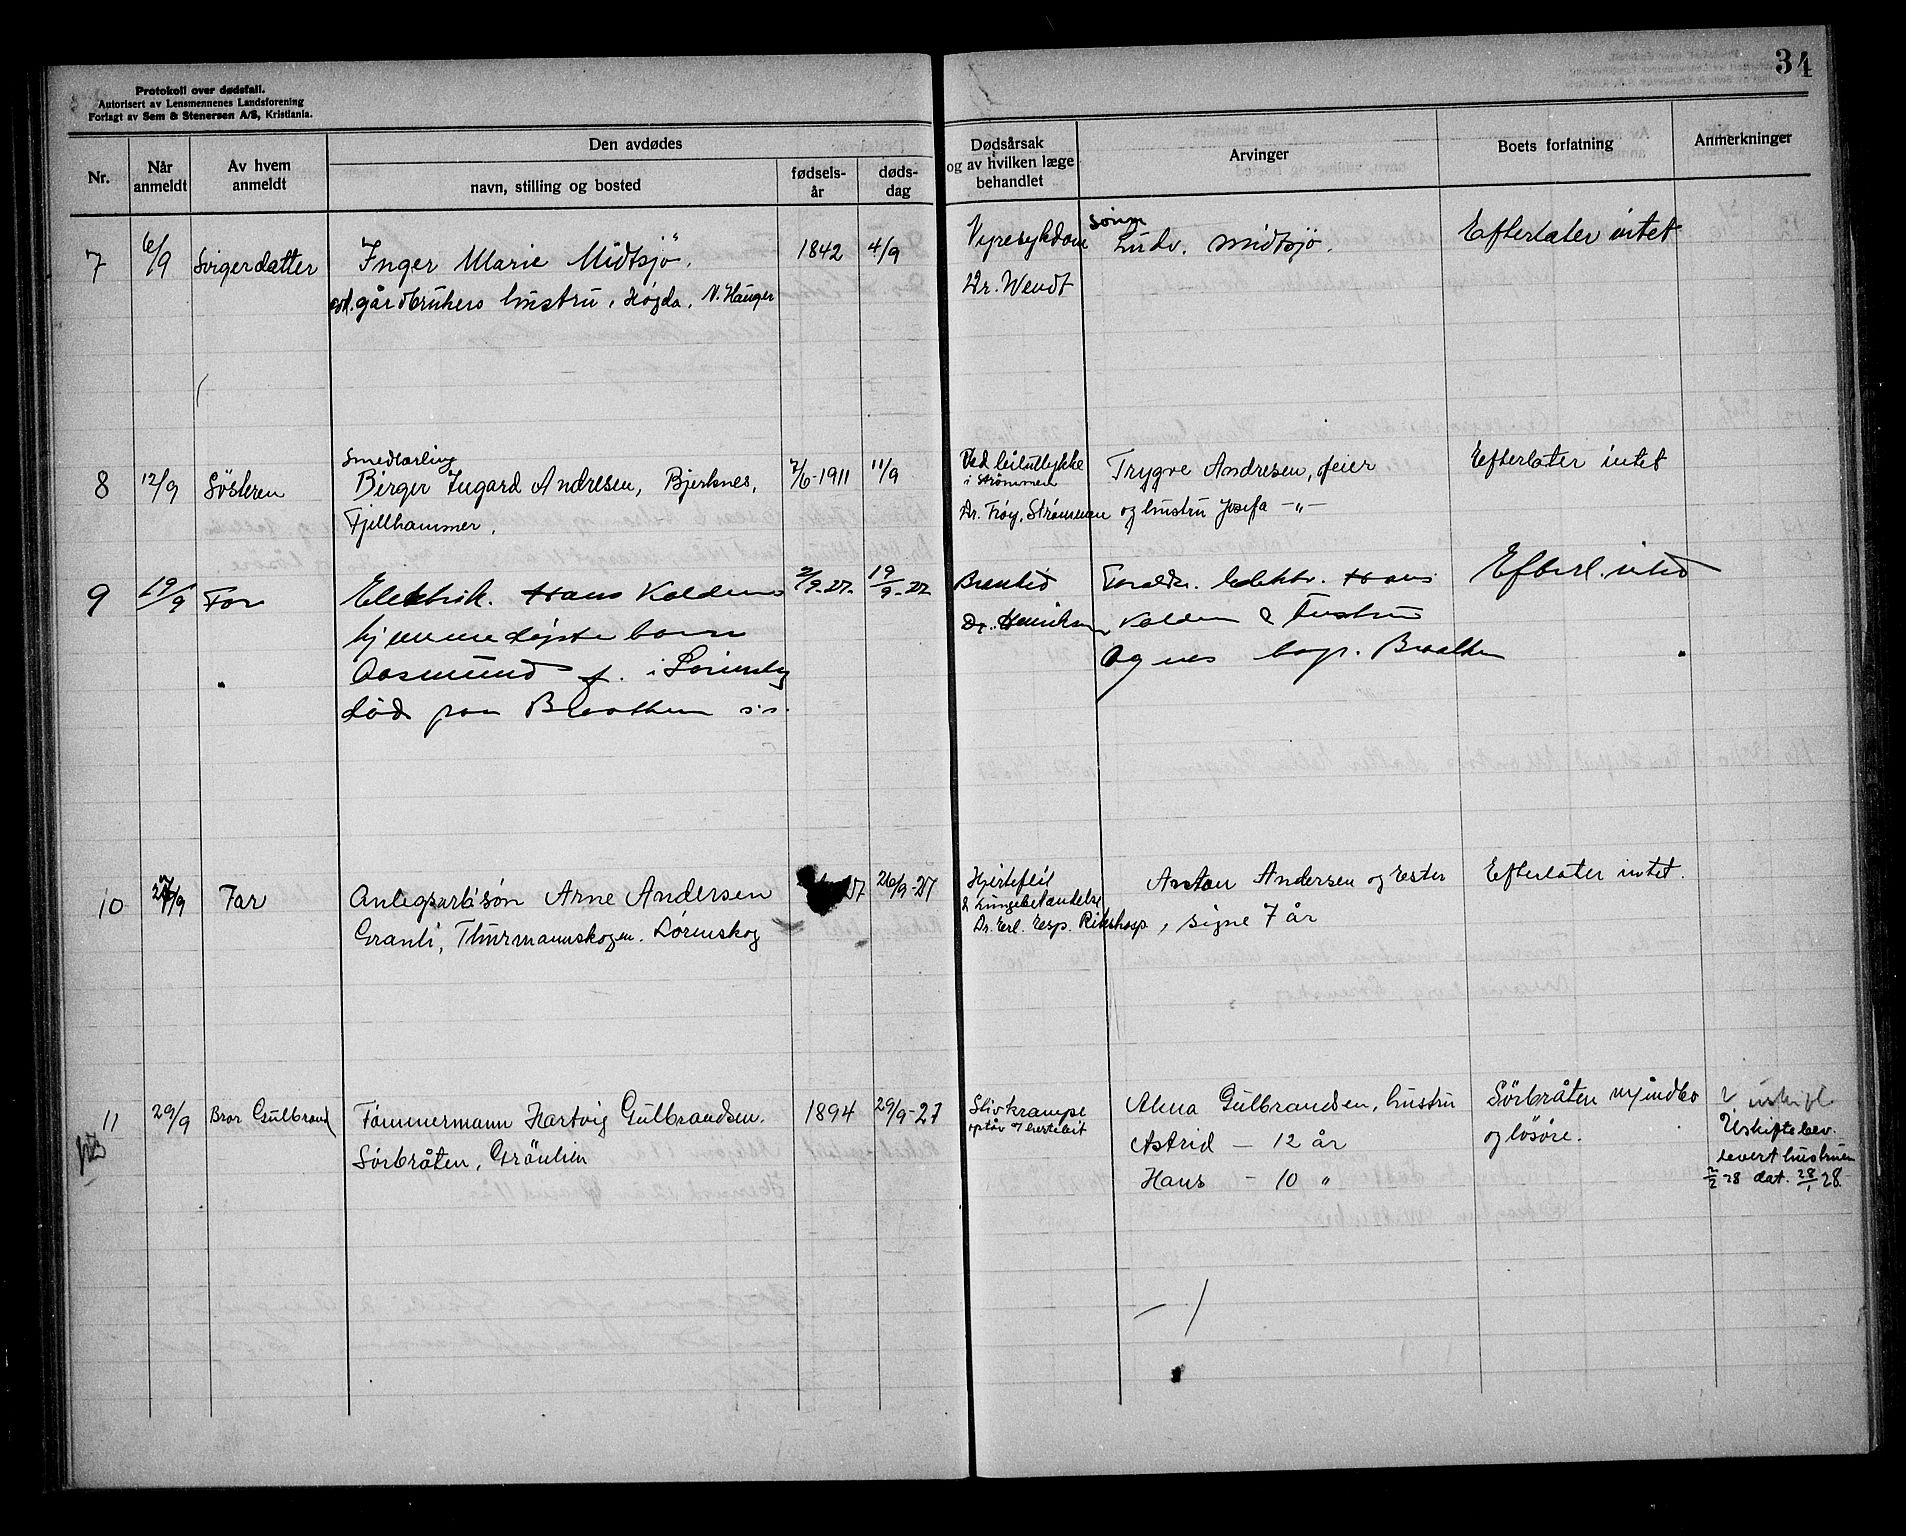 34
Protokoll over dødsfall.
Autorisert av Lensmennenes Landsforening
Forlagt av Sem & Stenersen A/S, Kristiania.
Nr.
Når anmeldt
Av hvem anmeldt
Den avdødes
navn, stilling og bosted
fødsels-år
døds-dag
Dødsårsak og av hvilken læge behandlet
Arvinger
Boets forfatning
Anmerkninger
7 6/9 Svigerdatter Inger Marie Midtsjö. 1842 4/9 Nyresykdom Sönn Ludv. Midtsjö. Efterlater intet
gårdbrukers hustru, Høgda, N. Hauger Dr. Wendt
Smedlærling
8 12/9 Søsteren Birger Ingard Andresen, Bjerknes, 7/6-1911 11/9 Ved bilulykke i Strømmen Trygve Andresen, feier Efterlater intet
Fjellhammer. Dr. Frøy, Strømmen og hustru Josefa -"-
9 19/9 Far Elektrik. Hans Kolden 2/9-27. 19/9-27 Foreldr. Elektr. Hans Efterl. intet
hjemmedøpte barn Dr. Henriksen Kolden & hustru
Aasmund f. i Lørenskog Agnes Braathen
död paa Braathen s.s.
10 27/9 Far Anlegsarb. sön Arne Andersen 27 26/9-27 Hjertefeil Anton Andersen og Ester Efterlater intet.
Granli, Thurmannskogen. Lørenskog & Lungebetændelse
Dr. Erl. Esp. Rikshosp. , Signe 7 år
11 29/9 Bror Gulbrand Tømmermann Hartvig Gulbrandsen. 1894 29/9-27 Stivkrampe Alma Gulbrandsen, hustru Sörbråten myindbo
Sörbråten, Astrid - 12 år og løsøre.
Hans - 10 "
Uskiftebev.
levert hustruen
2/2 28 dat. 28/1 28.